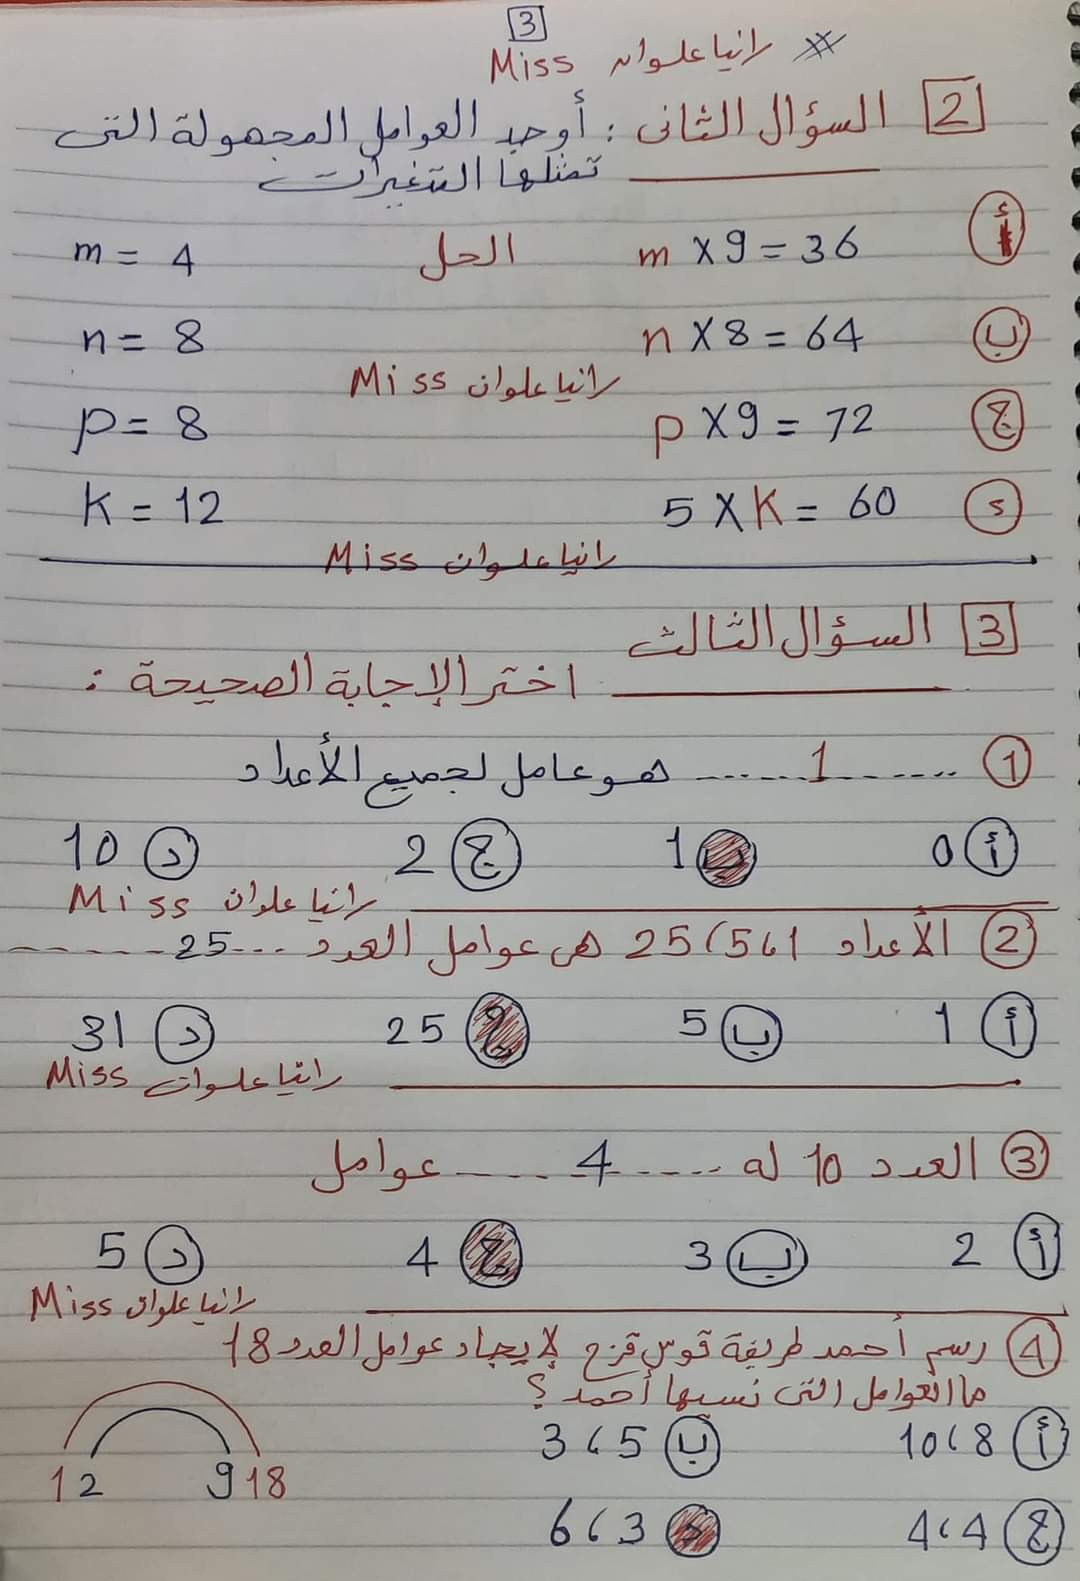 3
# رانيا علوان Miss
2 السؤال الثانى : أوجد العوامل المجهولة التى
تمثلها المتغيرات
أ m × 9 = 36 الحل m = 4
ب n × 8 = 64 n = 8
رانيا علوان Miss
ج p × 9 = 72 p = 8
د 5 × K = 60 K = 12
رانيا علوان Miss
3 السؤال الثالث
اختر الإجابة الصحيحة :
1 ......1...... هو عامل لجميع الأعداد
أ 0 ب 1 ج 2 د 10
رانيا علوان Miss
2 الأعداد 1، 5، 25 هى عوامل العدد ...25......
أ 1 ب 5 ج 25 د 31
رانيا علوان Miss
3 العدد 10 له .....4..... عوامل
أ 2 ب 3 ج 4 د 5
رانيا علوان Miss
4 رسم أحمد طريقة قوس قزح لإيجاد عوامل العدد 18
ما العوامل التى نسيها أحمد ؟
أ 8 ، 10 ب 5 ، 3
1 2 9 18
ج 4 ، 4 د 3 ، 6